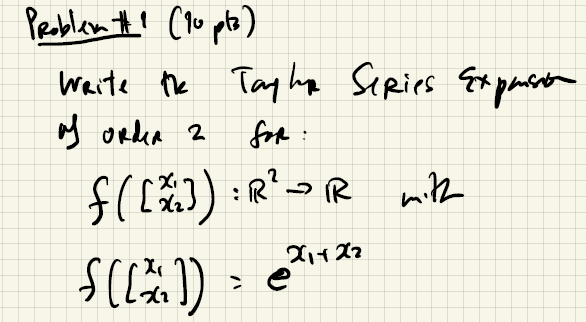 Problem #1 (10 pts)
Write the Taylor Series Expansion
of order 2 for:
f([x₁ x₂]) : ℝ² → ℝ with
f([x₁ x₂]) = e^{x₁+x₂}